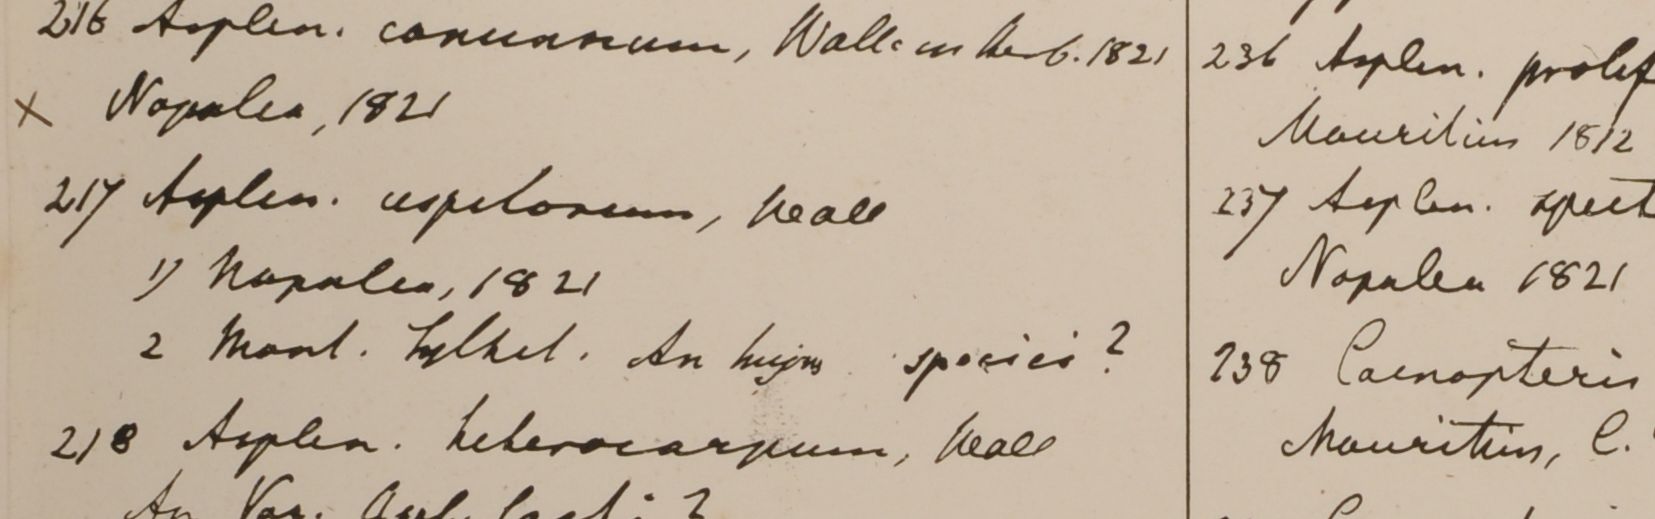 216 Asplen. concinnum, Wall. in herb. 1821
x Napalea, 1821
217 Asplen. cespitosum, Wall
1) Napalea, 1821
2 Mont. Sylhet. An hujus speciei?
218 Asplen. heterocarpum, Wall
An Var.
236 Asplen. prolif
Mauritius 1812
237 Asplen. spect
Napalea 1821
238 Caenopteris
Mauritius, C.